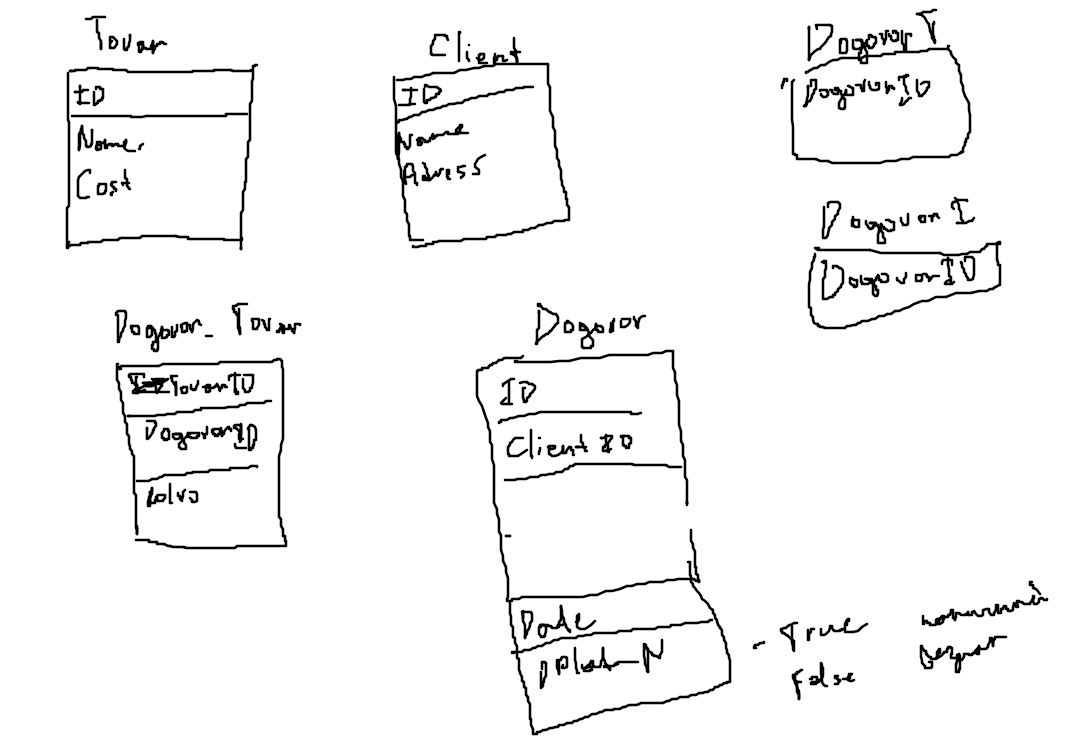 Tovar
ID
Name.
Cost
Client
ID
Name
Adress
Dogovor T
Dogovor ID
Dogovor I
Dogovor ID
Dogovor_Tovar
Tovar ID
Dogovor ID
kolvo
Dogovor
ID
Client ID
Date
- True
False